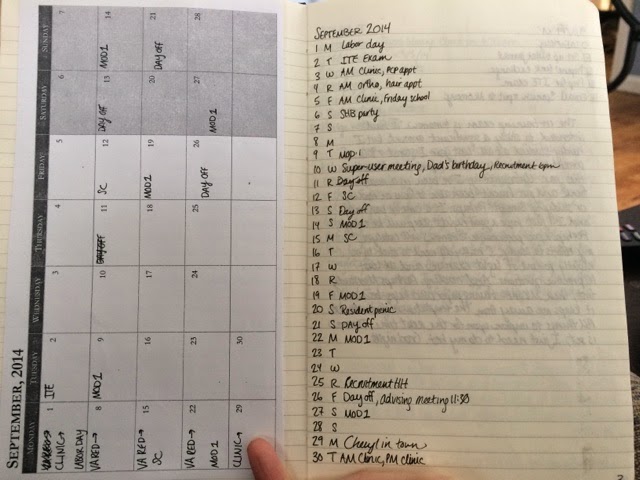 SEPTEMBER, 2014
MONDAY TUESDAY WEDNESDAY THURSDAY FRIDAY SATURDAY SUNDAY
1 2 3 4 5 6 7
CLINIC→ ITE
LABOR DAY
8 9 10 11 12 13 14
VA RED→ MOD1 DAY OFF SC DAY OFF MOD1
15 16 17 18 19 20 21
VA RED→ MOD1 DAY OFF
SC
22 23 24 25 26 27 28
VA RED→ DAY OFF MOD1
MOD 1
29 30
CLINIC→
SEPTEMBER 2014
1 M Labor day
2 T ITE Exam
3 W AM Clinic, PCP appt
4 R AM Ortho, hair appt
5 F AM Clinic, Friday school
6 S SHB party
7 S
8 M
9 T MOD 1
10 W Super-user meeting, Dad's birthday, Recruitment 6pm
11 R Day off
12 F SC
13 S Day off
14 S MOD1
15 M SC
16 T
17 W
18 R
19 F MOD1
20 S Resident picnic
21 S DAY off
22 M MOD1
23 T
24 W
25 R Recruitment HH
26 F Day off, advising meeting 11:30
27 S MOD1
28 S
29 M Cheryl in town
30 T AM Clinic, PM clinic